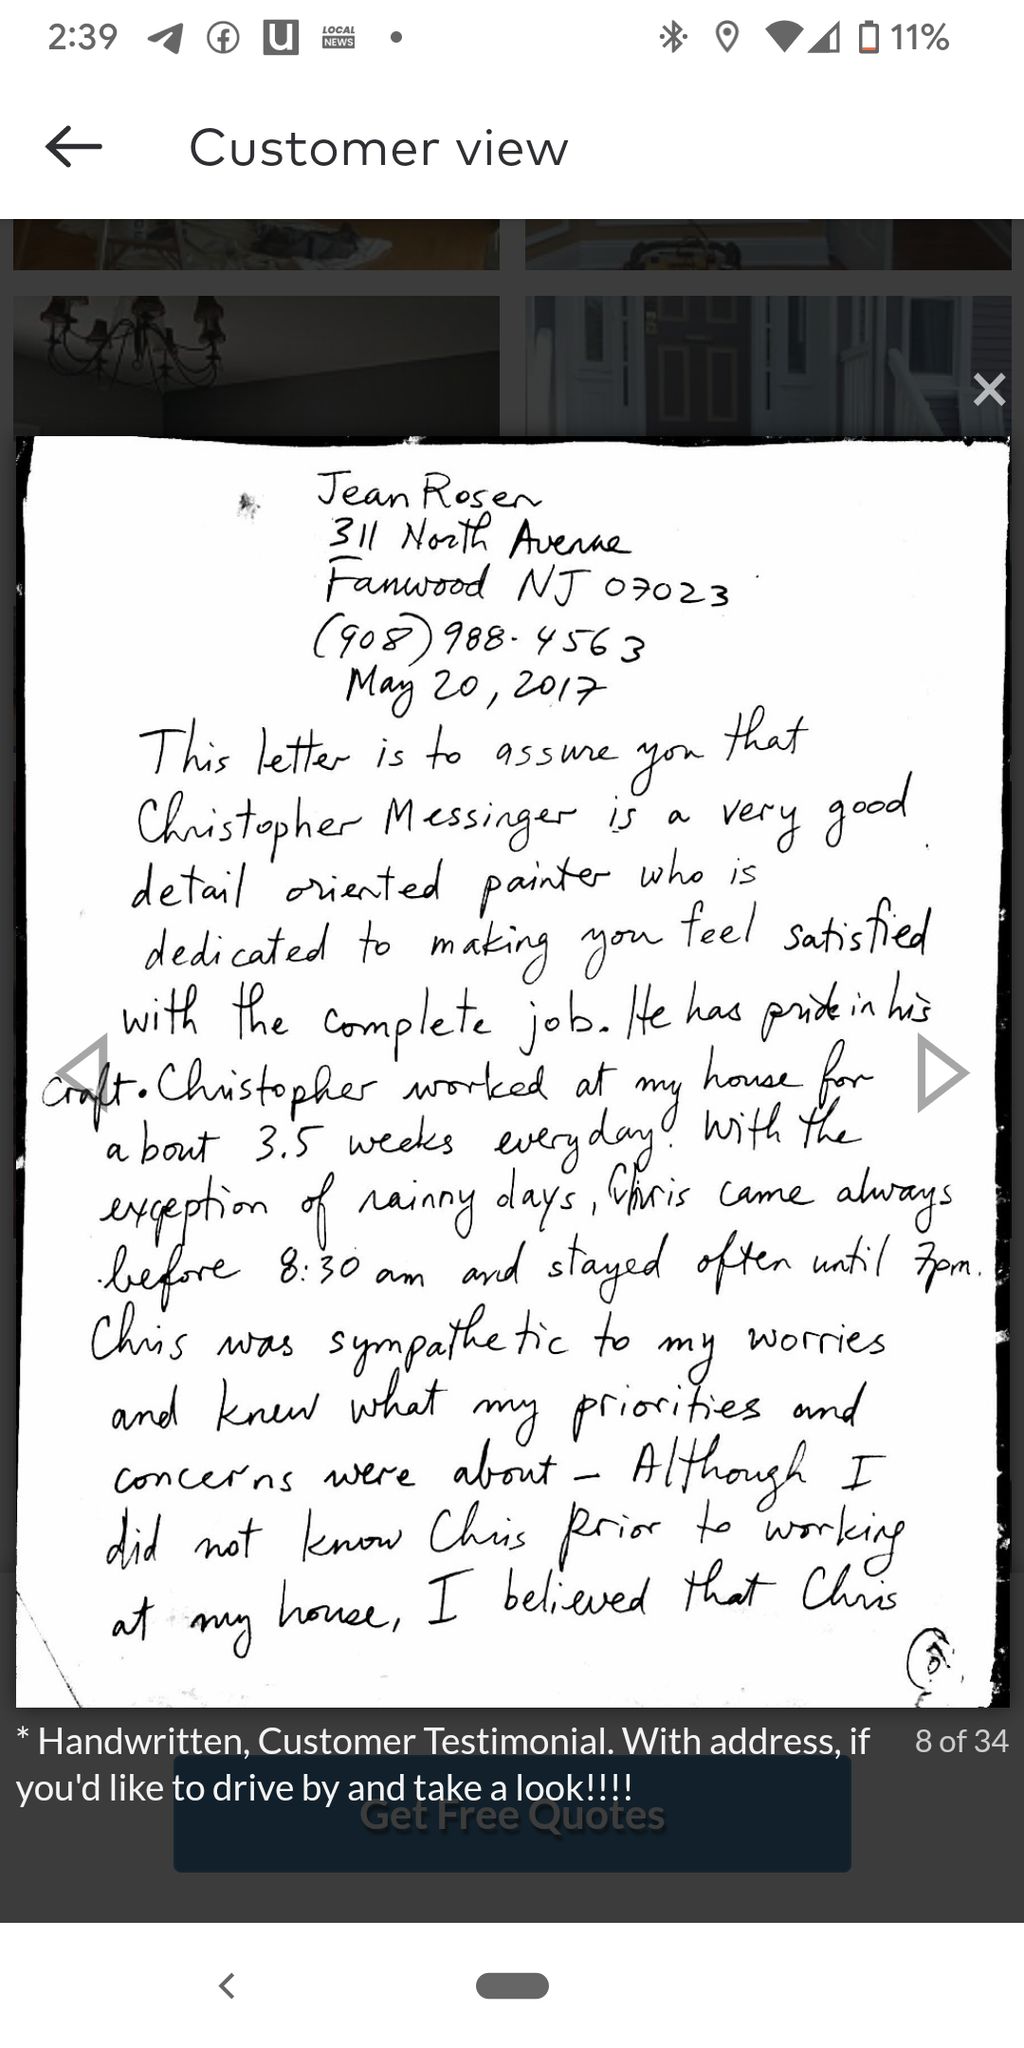 2:39
LOCAL NEWS
11%
Customer view
Jean Rosen
311 North Avenue
Fanwood NJ 07023
(908) 988-4563
May 20, 2017
This letter is to assure you that
Christopher Messinger is a very good
detail oriented painter who is
dedicated to making you feel satisfied
with the complete job. He has pride in his
craft. Christopher worked at my house for
about 3.5 weeks everyday. With the
exception of rainny days, Chris came always
before 8:30 am and stayed often until 7pm.
Chris was sympathetic to my worries
and knew what my priorities and
concerns were about - Although I
did not know Chris prior to working
at my house, I believed that Chris
* Handwritten, Customer Testimonial. With address, if
8 of 34
you'd like to drive by and take a look!!!!
Get Free Quotes